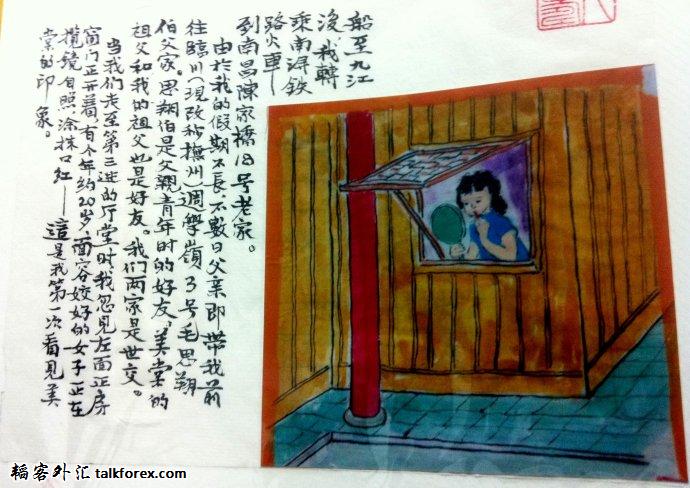 船至九江
後我轉
乘南潯鉄
路火車—
到南昌陳家橋18号老家。
由於我的假期不長,不數日父亲即带我前
往臨川(現改称撫州)週學嶺3号毛思翔
伯父家。思翔伯是父親青年时的好友,美棠的
祖父和我的祖父也是好友。我们两家是世交。
当我们走至第三进的厅堂时,我忽见左面正房
窗门正开着,有个年约20岁,面容姣好的女子正在
揽镜自照涂抹口红——這是我第一次看见美
棠的印象。
韬客外汇 talkforex.com